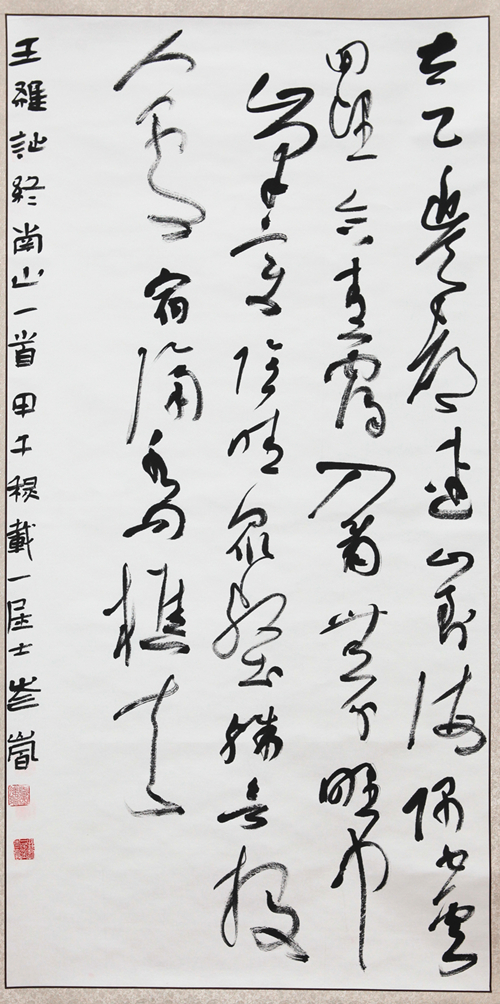 太乙近天都連山到海隅白雲
回望合青靄入看無分野中
峰變陰晴眾壑殊欲投
人處宿隔水問樵夫
王維詩終南山一首甲午載一居士